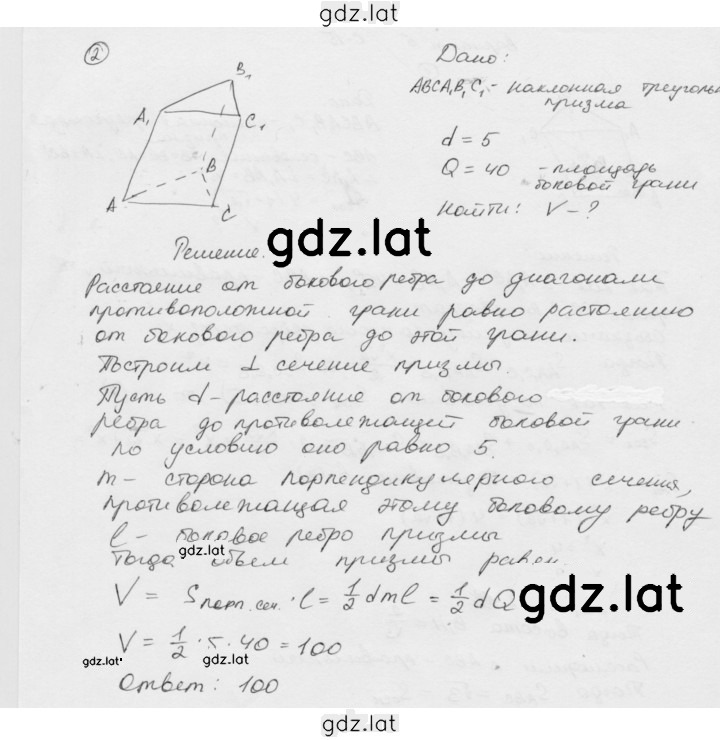 gdz.lat
2
Дано:
ABCA₁B₁C₁ - наклонная треуголь
призма
d = 5
Q = 40 - площадь
боковой грани
Найти: V - ?
B₁
A₁
C₁
B
A
C
gdz.lat
Решение.
Расстояние от бокового ребра до диагонали
противоположной грани равно растоянию
от бокового ребра до этой грани.
Построим ⊥ сечение призмы
Пусть d - расстояние от бокового
ребра до противолежащей боковой грани
по условию оно равно 5.
m - сторона перпендикулярного сечения,
противолежащая этому боковому ребру
l - боковое ребро призмы
Тогда объем призмы равен
gdz.lat
V = Sперп.сеч. · l = 1/2 dml = 1/2 dQ
gdz.lat
V = 1/2 · 5 · 40 = 100
gdz.lat
gdz.lat
Ответ: 100
gdz.lat